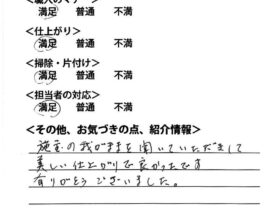 <職人のマナー>
満足 普通 不満
<仕上がり>
満足 普通 不満
<掃除・片付け>
満足 普通 不満
<担当者の対応>
満足 普通 不満
<その他、お気づきの点、紹介情報>
施主の我がままを聞いていただきまして
美しい仕上がりで良かったです
有りがとうございました。